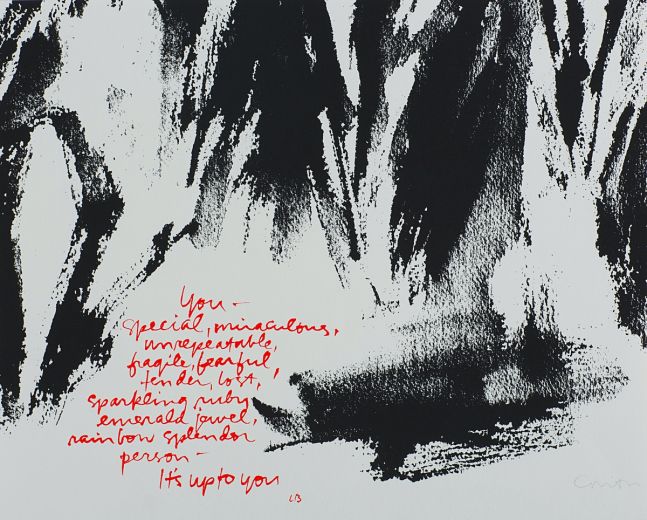 You –
special, miraculous,
unrepeatable,
fragile, fearful,
tender, lost,
sparkling ruby
emerald jewel,
rainbow splendor
person –
It's up to you
LB